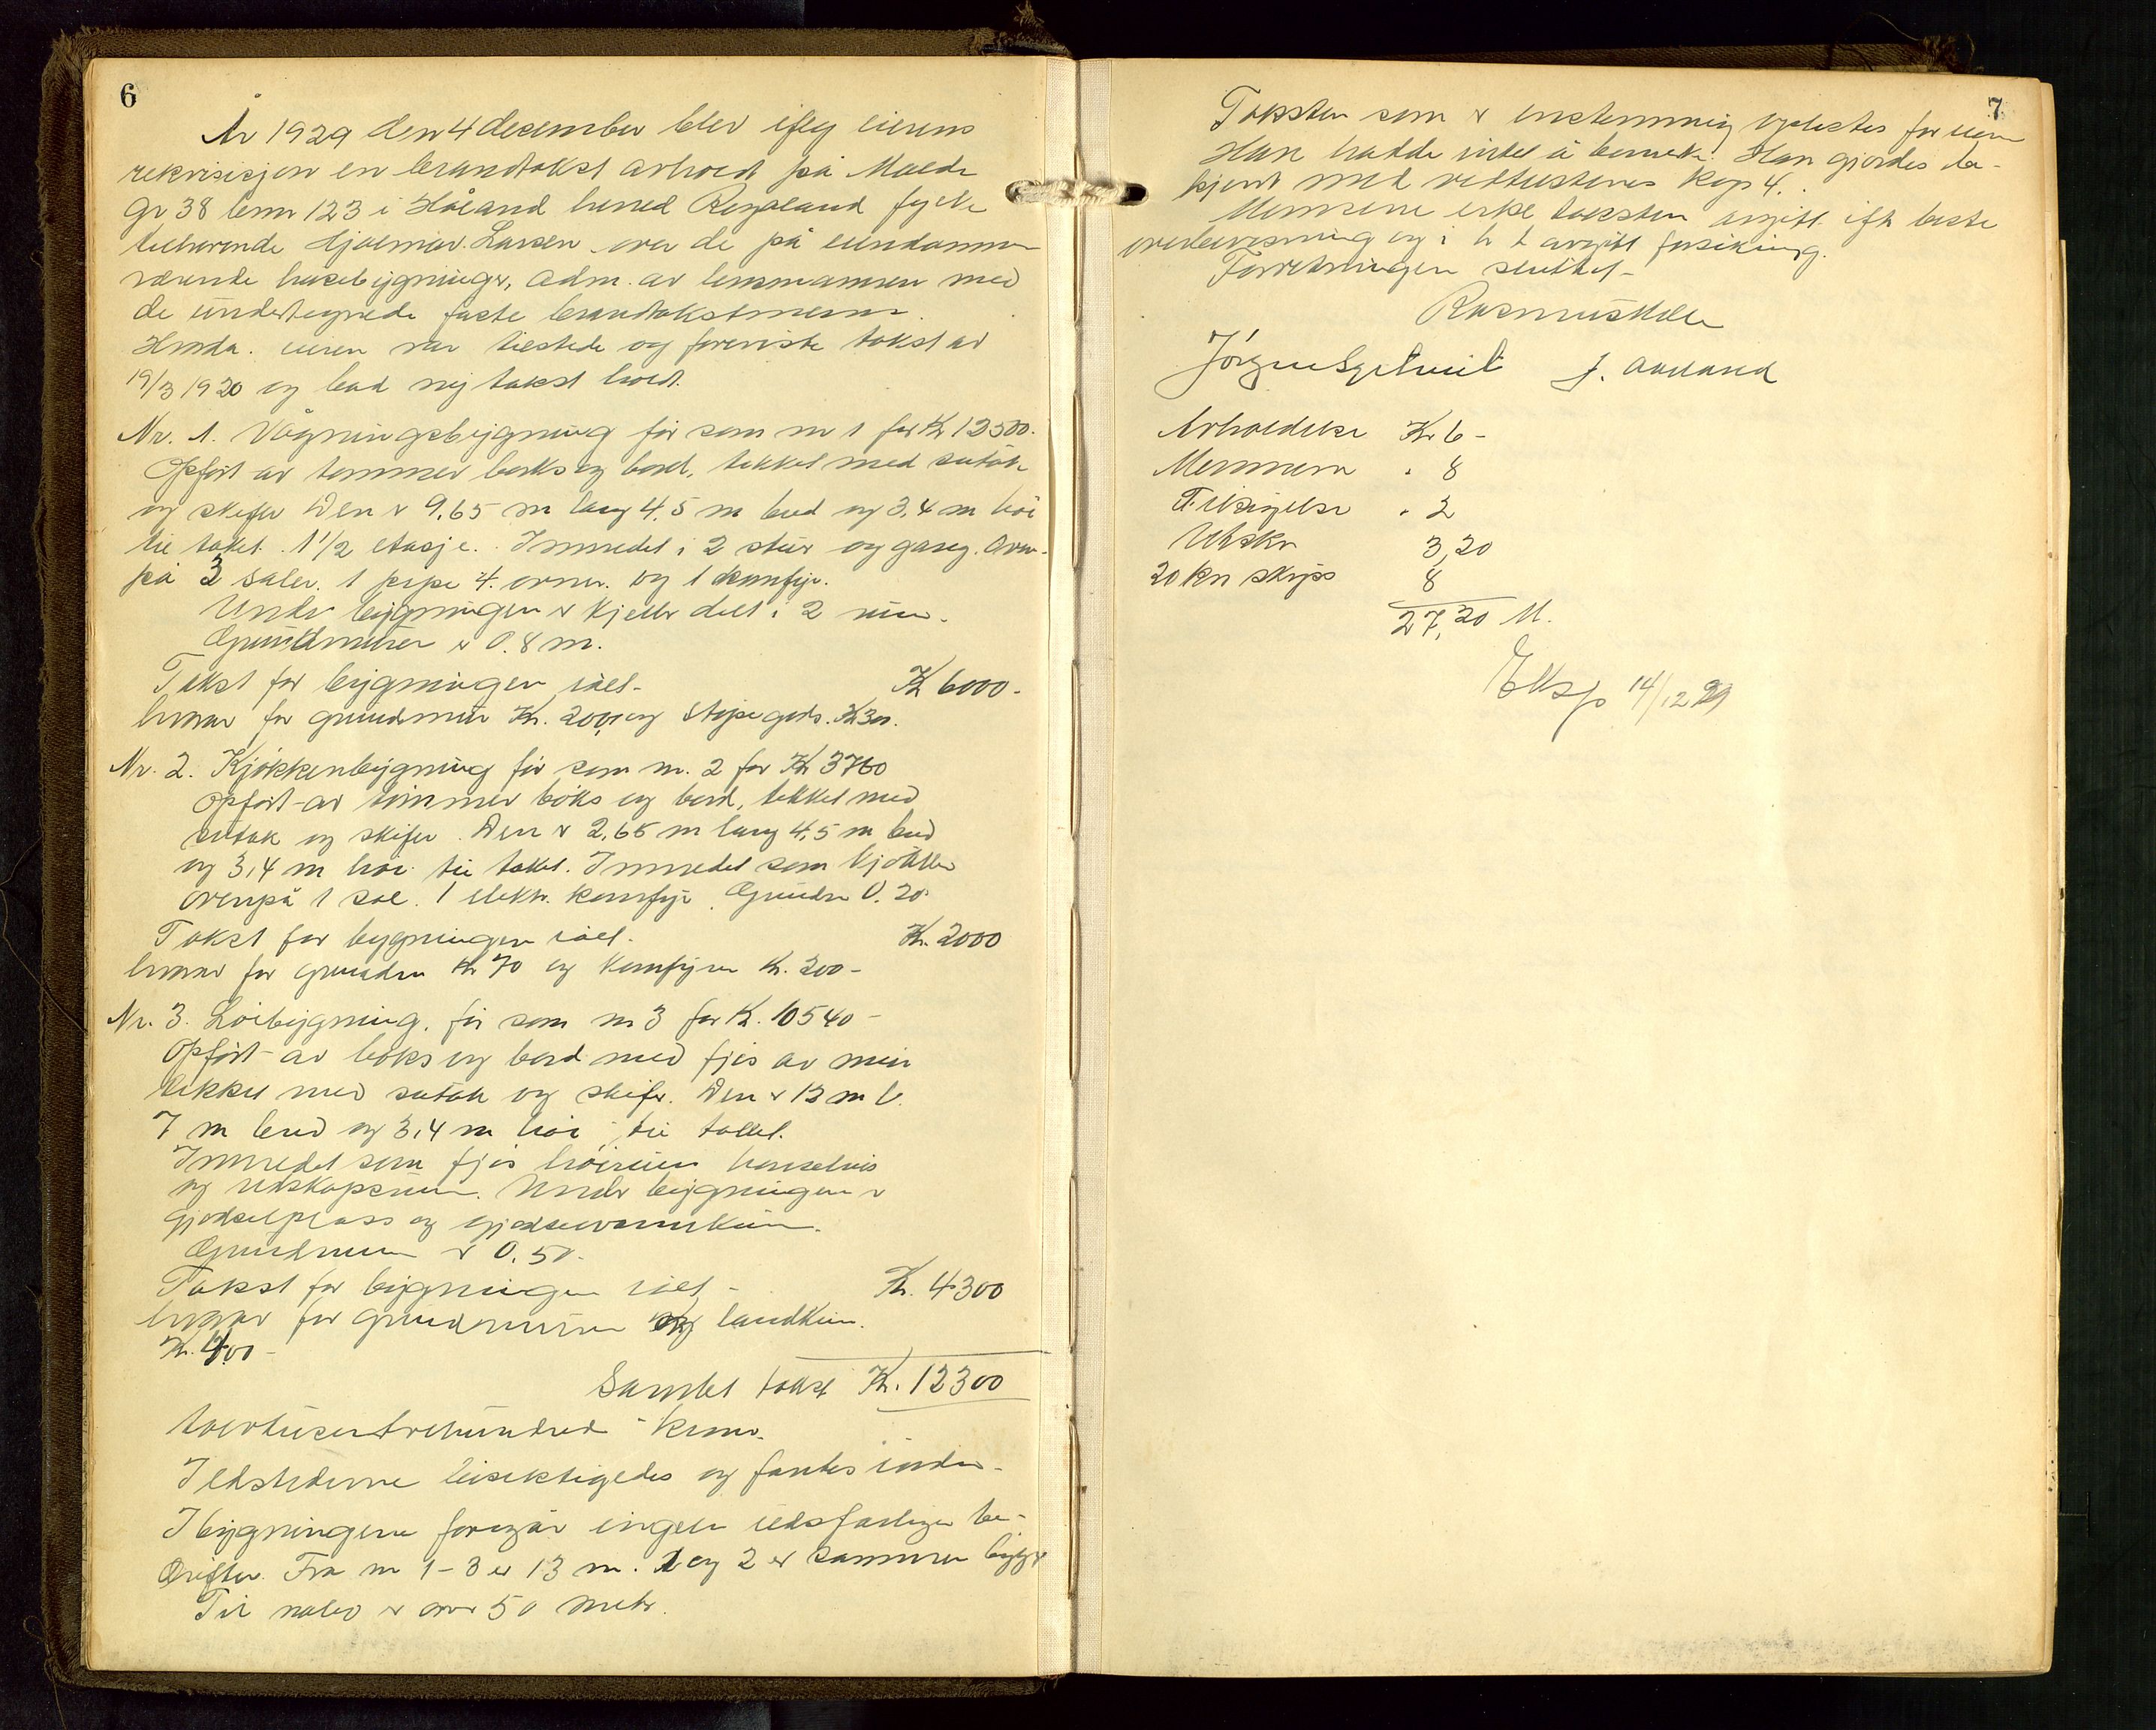 6
År 1929 den 4 desember blev ifølg eierens
rekvisisjon en branntakst avholdt på Molde
Gr 38 brnr 123 i Håland herred Rogaland fylke
tilhørende Hjalmar Larsen over de på eiendommen
værende husebygninger, adm. av lensmannen med
de undertegnede faste branntakstmenn.
eieren var tilstede og foreviste takst av
19/3 1920 og bad nij takst holdt.
Nr. 1. Våningsbygning før som nr 1 for Kr 12500.
Opført av tømmer boks og bord, tekket med sutak
og skifer Den er 9,65 m lang 4,5 m bred og 3,4 m høi
til taket. 1 1/2 etasje. Innredet i 2 stuer og gang. Oven-
på 3 saler. 1 pipe 4. ovner. og 1 komfyr.
Under bygningen er kjeller delt i 2 rum.
Grundmuren er 0.8 m.
Takst for bygningen ialt- Kr 6000-
hvorav for grundmur Kr. 200, og støpegods. Kr 300.
Nr. 2. Kjøkkenbygning før som nr. 2 for Kr 3760
Opført av tømmer boks og bord, tekket med
sutak og skifer. Den er 2,65 m lang 4,5 m bred
og 3,4 m høi til taket. Innredet som kjøkken
ovenpå 1 sal. 1 elektr. komfyr. Grundm 0.20
Takst for bygningen ialt- Kr. 2000
hvorav for grundm Kr 70 og komfyren Kr. 200-
Nr. 3. Løebygning. før som nr 3 for Kr. 10540-
Opført av boks og bord med fjøs av mur
tekket med sutak og skifer. Den er 13 m l.
7 m bred og 3,4 m høi til taket.
Innredet som fjøs høirum hønsehus
og redskapsrum. Under bygningen er
gjødselplass og gjødselvannskum.
Grundmuren er 0.50-
Takst for bygningen ialt- Kr. 4300
hvorav for grundmuren og landkum.
Kr. 400-
Samlet takst Kr. 12300
tolvtusentrehundred kroner
Ildstederne besiktigedes og fantes iorden-
I bygningene foregår ingen ildsfarlige be-
drifter. Fra nr 1-3 er 13 m. 1 og 2 er sammen bygget
Til nabo er over 50 meter.
7
Taksten som er enstemmig oplestes for eieren
Han hadde intet å bemerke. Han gjordes be-
kjent med rettledningens kap 4.
Mennene erkl taksten avgitt efter beste
overbevisning og i h t avgitt forsikring.
Forretningen sluttet-
Jörgen Sgitnit J. Aadland
Avholdelse Kr 6-
Mennene " 8
Tilsigelse " 2
Utskr 3,20
20 km skyss 8
27,20 M.
Eksp 14/12 29